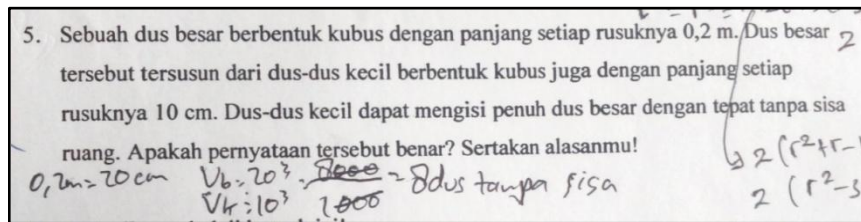 5. Sebuah dus besar berbentuk kubus dengan panjang setiap rusuknya 0,2 m. Dus besar 2
tersebut tersusun dari dus-dus kecil berbentuk kubus juga dengan panjang setiap
rusuknya 10 cm. Dus-dus kecil dapat mengisi penuh dus besar dengan tepat tanpa sisa
ruang. Apakah pernyataan tersebut benar? Sertakan alasanmu!
2 (r²+r-
0,2m = 20 cm Vb = 20³ 8000 = 8 dus tanpa sisa
Vk = 10³ 1000
2 (r²-